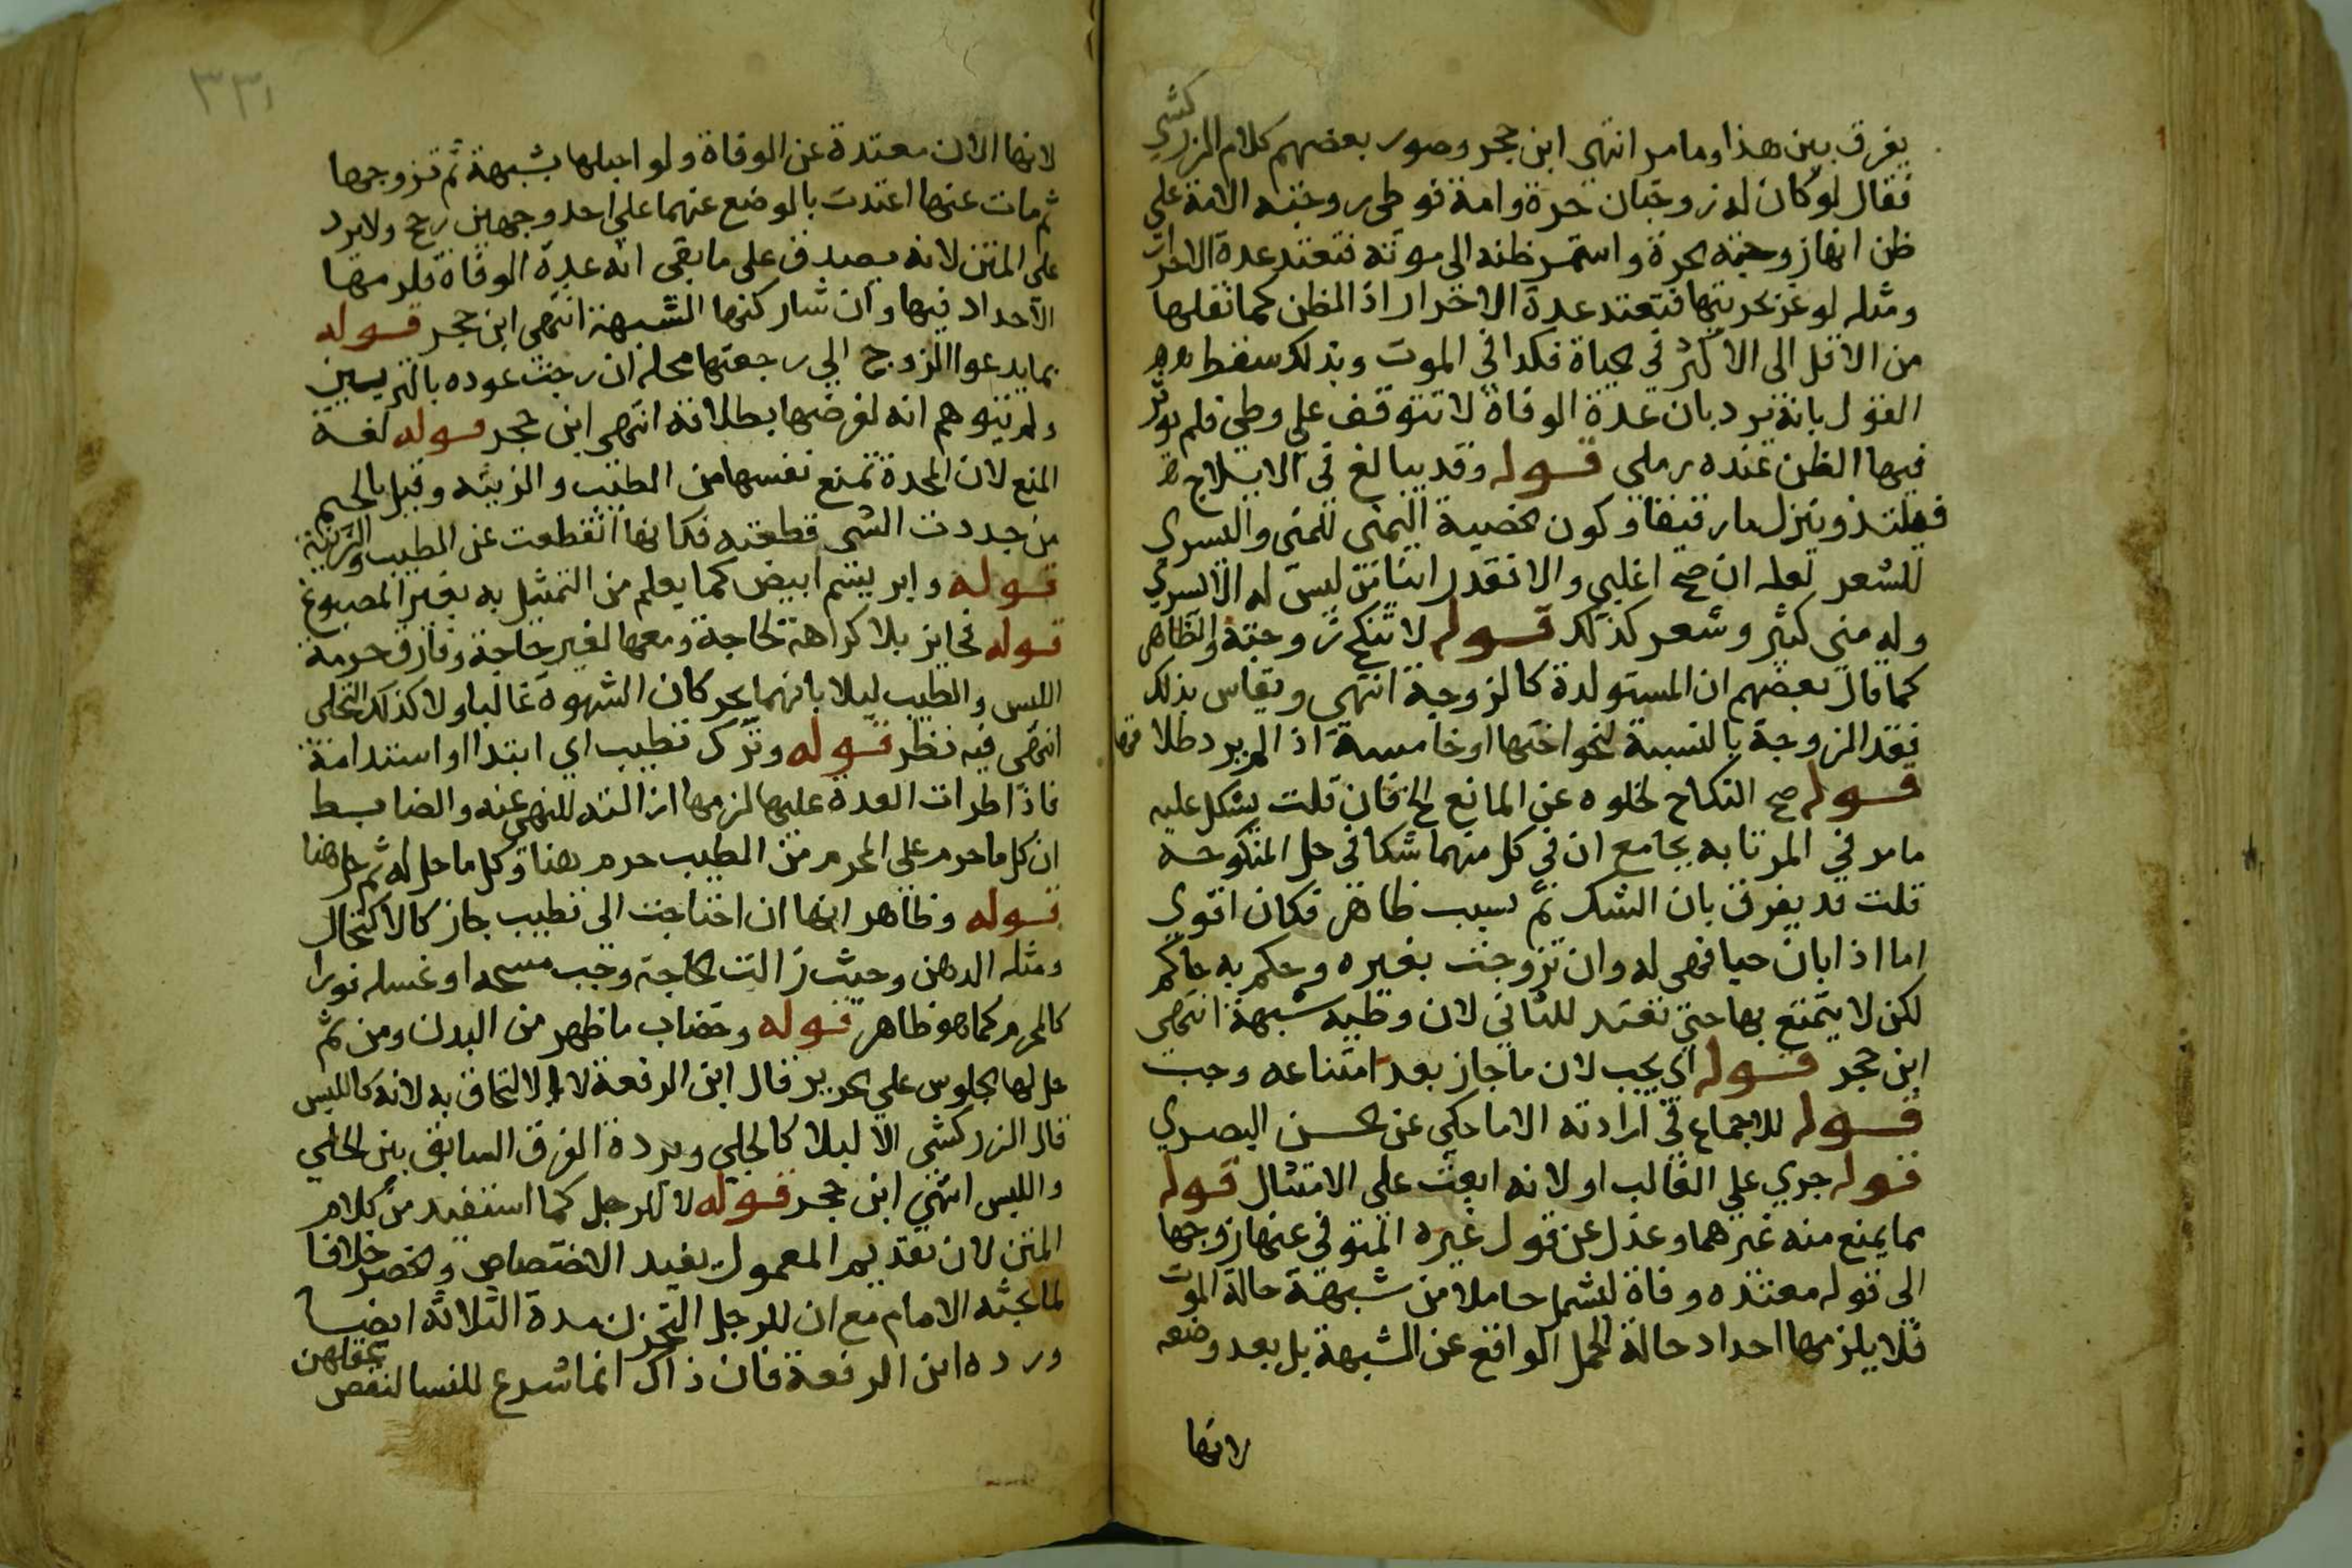 يفرق بين هذا وما مر انتهى ابن حجر وصور بعضهم كلام الزركشي
فقال لو كان له زوجتان حرة وامة فوطى زوجته الامة على
ظن انها زوجته الحرة واستمر ظنه الى موته فتعتد عدة الاحرار
ومثله لو غر بحريتها فتعتد عدة الاحرار اذ الظن كما نقلها
من الاقل الى الاكثر في الحياة فكذا في الموت وبذلك سقط
القول بانه يرد بان عدة الوفاة لا تتوقف على وطئ فلم يوثر
فيها الظن عنده رملي قوله وقد يبالغ في الايلاج
فيلتذ وينزل ما رقيقا وكون الخصية اليمنى للمنى واليسرى
للشعر لعله ان صح اغلبي والا فقد راينا من ليس له الا اليسرى
وله منى كثير وشعر كذلك قوله لا تنكح زوجته والظاهر
كما قال بعضهم ان المستولدة كالزوجة انتهى ويقاس بذلك
فقد الزوجة بالنسبة لنحو اختها او خامسة اذا لم يرد طلاقها
قوله صح النكاح لخلوه عن المانع الخ فان قلت يشكل عليه
ما مر في المرتابه بجامع ان في كل منهما شكا في حل المنكوحة
قلت قد يفرق بان الشك ثم سبب ظاهر فكان اقوى
اما اذا بان حيا فهي له وان تزوجت بغيره وحكم به حاكم
لكن لا يتمتع بها حتى تعتد للثاني لان وطيه شبهة انتهى
ابن حجر قوله اي يجب لان ما جاز بعد امتناعه وجب
قوله للاجماع في ارادته الا ما حكي عن الحسن البصري
قوله جرى على الغالب او لانه ابعث على الامتثال قوله
بما يمنع منه غيرهما وعدل عن قول غيره المتوفى عنها زوجها
الى قوله معتده وفاة ليشمل حاملا من شبهة حالة الموت
فلا يلزمها احداد حالة الحمل الواقع عن الشبهة بل بعد وضعه
لانها
٣٣١
لانها الان معتدة عن الوفاة ولو احبلها بشبهة ثم تزوجها
ثم مات عنها اعتدت بالوضع عنهما على احد وجهين رجح ولا يرد
على المتن لانه يصدق على ما بقى انه عدة الوفاة فلزمها
الاحداد فيها وان شاركتها الشبهة انتهى ابن حجر قوله
بما يدعوا الزوج الى رجعتها محله ان رجت عوده بالتزيين
ولم يتوهم انه لفرضها بطلاقه انتهى ابن حجر قوله لغة
المنع لان المحدة تمنع نفسها من الطيب والزينة وقيل بالجيم
من جددت الشى قطعته فكانها انقطعت عن الطيب والزينة
قوله وابريسم ابيض كما يعلم من التمثيل به بغير المصبوغ
قوله فجايز بلا كراهة لحاجة ومعها لغير حاجة وفارق حرمة
اللبس والطيب ليلا بانهما يحركان الشهوة غالبا ولا كذلك التحلى
انتهى فيه نظر قوله وترك تطيب اي ابتدا او استدامة
فاذا طرات العدة عليها لزمها ازالته للنهي عنه والضابط
ان كل ما حرم على المحرم من الطيب حرم هنا وكل ما حل له ثم حل هنا
قوله وظاهر انها ان احتاجت الى تطيب جاز كالاكتحال
ومثله الدهن وحيث زالت الحاجة وجب مسحه او غسله فورا
كالمحرم كما هو ظاهر قوله وخضاب ما ظهر من البدن ومن ثم
حل لها الجلوس على الحرير قال ابن الرفعة لا الالتحاف به لانه كاللبس
قال الزركشي الا ليلا كالحلي ويرده الفرق السابق بين الحلي
واللبس انتهى ابن حجر قوله لا للرجل كما استفيد من كلام
المتن لان تقديم المعمول يفيد الاختصاص والحصر خلافا
لما بحثه الامام مع ان للرجل التحزن مدة الثلاثة ايضا
ورده ابن الرفعة فان ذاك انما شرع للنسا لنقص عقلهن